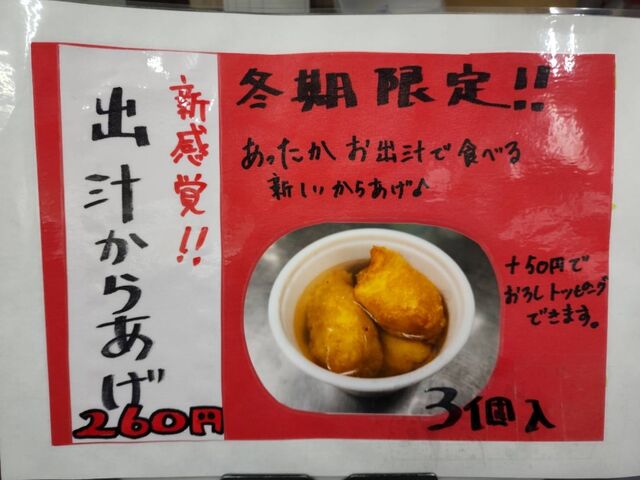 冬期限定!!
あったか お出汁で食べる
新しいからあげ♪
新感覚!!
出汁からあげ
260円
+50円で
おろしトッピング
できます。
3個入